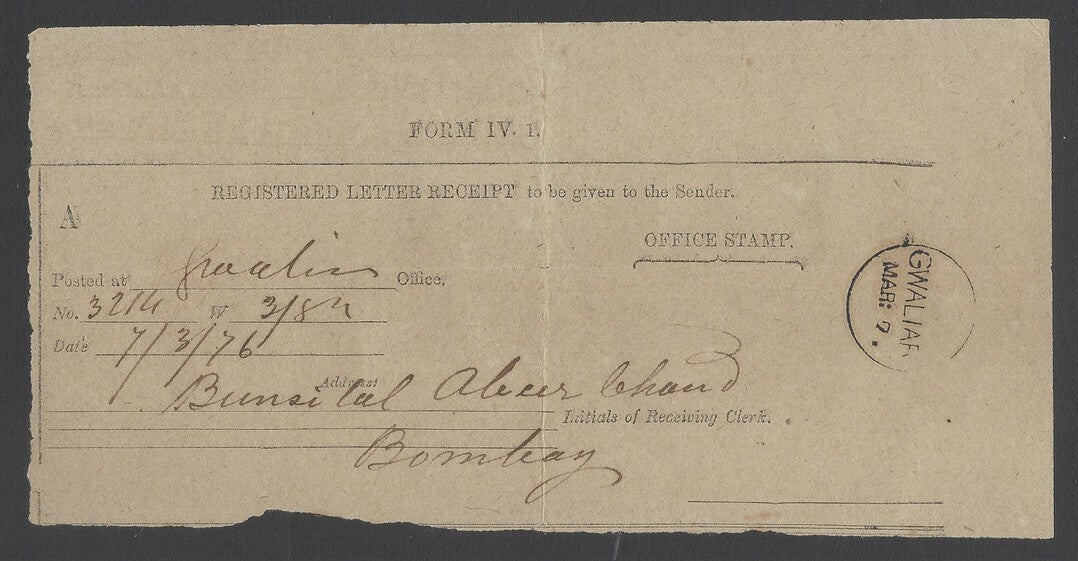 FORM IV. 1.
REGISTERED LETTER RECEIPT to be given to the Sender.
A
OFFICE STAMP.
Posted at Gwalior Office.
No. 3214 W 3/8
Date 7/3/76
GWALIAR
MAR: 7.
Address
Bunsilal Abeer Chand
Initials of Receiving Clerk.
Bombay